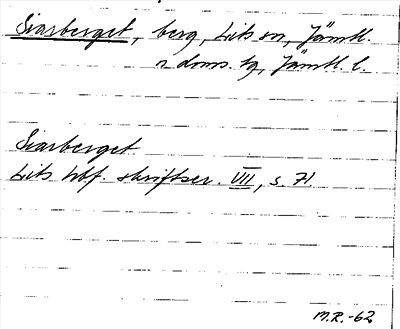 Siarberget, berg, Lits sn, Jämtl.
n doms. tg, Jämtl. l.
Siarberget
Lits hbf. skriftser. VII, s. 71
M.R.-62